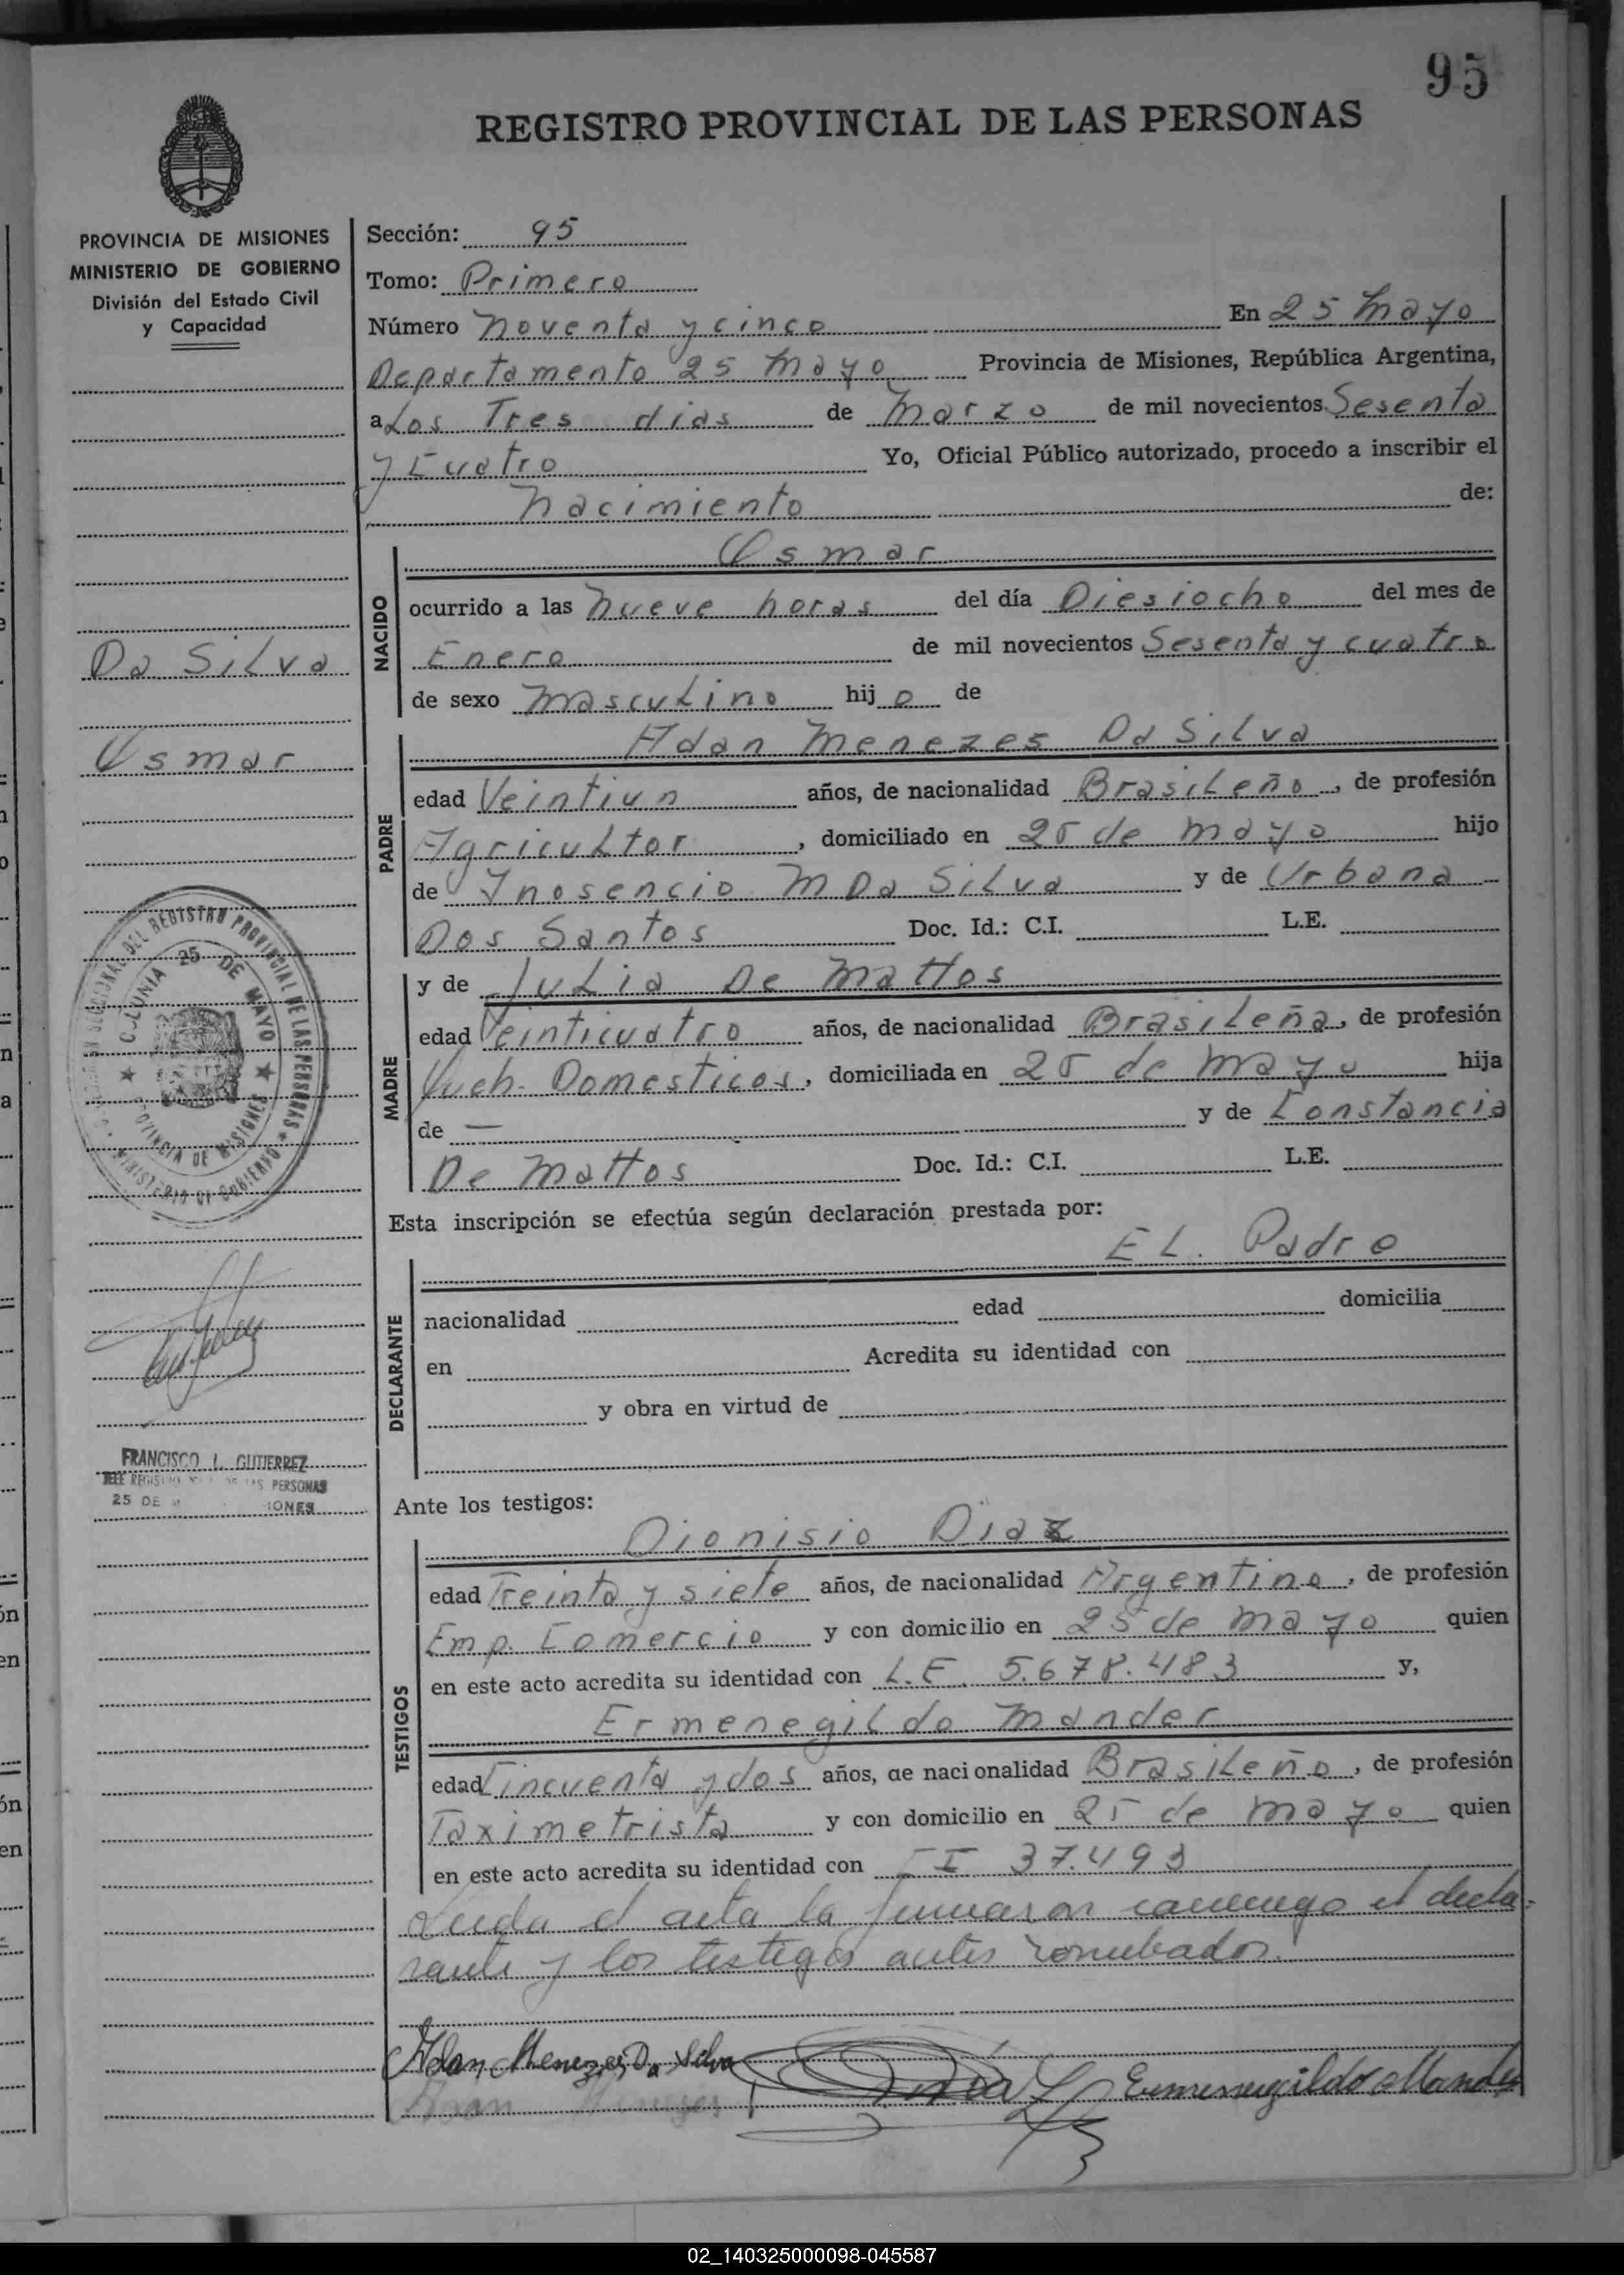 95
REGISTRO PROVINCIAL DE LAS PERSONAS
PROVINCIA DE MISIONES
MINISTERIO DE GOBIERNO
División del Estado Civil
y Capacidad
Da Silva
Osmar
COLONIA 25 DE MAYO
PROVINCIA DE MISIONES
DEL REGISTRO PROVINCIAL DE LAS PERSONAS
MINISTERIO DE GOBIERNO
FRANCISCO L. GUTIERREZ
PERSONAS
25 DE
Sección: 95
Tomo: Primero
Número Noventa y cinco En 25 Mayo
Departamento 25 Mayo Provincia de Misiones, República Argentina,
a Los Tres dias de Marzo de mil novecientos Sesenta
y Cuatro Yo, Oficial Público autorizado, procedo a inscribir el
Nacimiento de:
NACIDO
Osmar
ocurrido a las Nueve horas del día Diesiocho del mes de
Enero de mil novecientos Sesenta y cuatro
de sexo Masculino hijo de
PADRE
Adan Menezes Da Silva
edad Veintiun años, de nacionalidad Brasileño, de profesión
Agricultor, domiciliado en 25 de Mayo hijo
de Inosencio M Da Silva y de Urbana
Dos Santos Doc. Id.: C.I. L.E.
MADRE
y de Julia De Mattos
edad Veinticuatro años, de nacionalidad Brasileña, de profesión
Queh. Domesticos, domiciliada en 25 de Mayo hija
de — y de Constancia
De Mattos Doc. Id.: C.I. L.E.
Esta inscripción se efectúa según declaración prestada por:
DECLARANTE
EL. Padre
nacionalidad edad domicilia
en Acredita su identidad con
y obra en virtud de
Ante los testigos:
TESTIGOS
Dionisio Diaz
edad Treinta y siete años, de nacionalidad Argentino, de profesión
Emp. Comercio y con domicilio en 25 de Mayo quien
en este acto acredita su identidad con L.E. 5.678.483 y,
Ermenegildo Mander
edad Cincuenta y dos años, de nacionalidad Brasileño, de profesión
Taximetrista y con domicilio en 25 de Mayo quien
en este acto acredita su identidad con CI 37.493
Leida el acta la firmaron conmigo el decla-
rante y los testigos antes nombrados.
Adan Menezes Da Silva
Ermenegildo Mander
02_140325000098-045587